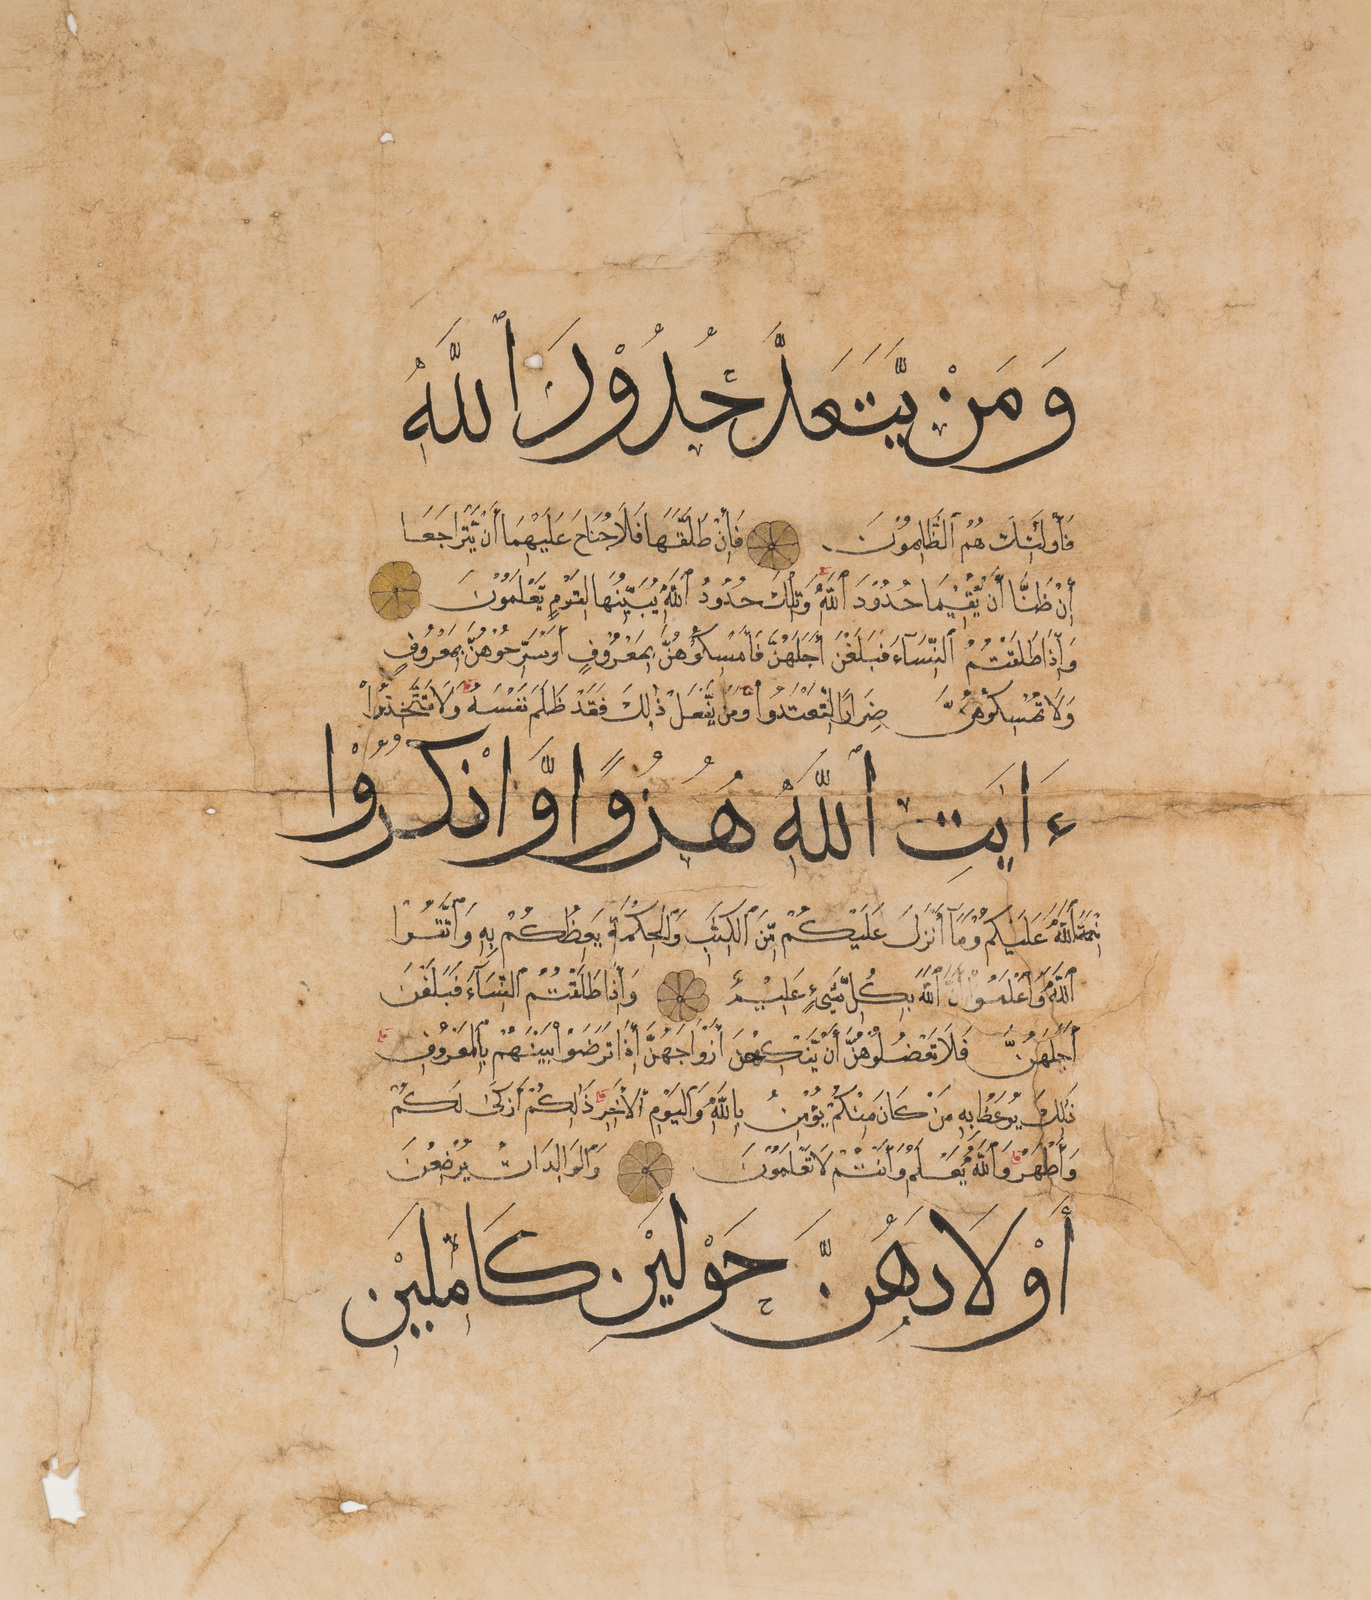 وَمَنْ يَّتَعَدَّ حُدُوْدَ ٱللّٰهِ
فَأُولَٰئِكَ هُمُ ٱلظَّٰلِمُوْنَ فَإِنْ طَلَّقَهَا فَلَا جُنَاحَ عَلَيْهِمَا أَنْ يَّتَرَاجَعَا
إِنْ ظَنَّا أَنْ يُّقِيْمَا حُدُوْدَ ٱللّٰهِ وَتِلْكَ حُدُوْدُ ٱللّٰهِ يُبَيِّنُهَا لِقَوْمٍ يَّعْلَمُوْنَ
وَإِذَا طَلَّقْتُمُ ٱلنِّسَآءَ فَبَلَغْنَ أَجَلَهُنَّ فَأَمْسِكُوْهُنَّ بِمَعْرُوْفٍ أَوْ سَرِّحُوْهُنَّ بِمَعْرُوْفٍ
وَلَا تُمْسِكُوْهُنَّ ضِرَارًا لِّتَعْتَدُوْا وَمَنْ يَّفْعَلْ ذٰلِكَ فَقَدْ ظَلَمَ نَفْسَهُ وَلَا تَتَّخِذُوْا
ءَايٰتِ ٱللّٰهِ هُزُوًا وَّاذْكُرُوْا
نِعْمَةَ ٱللّٰهِ عَلَيْكُمْ وَمَآ أَنْزَلَ عَلَيْكُمْ مِّنَ ٱلْكِتٰبِ وَٱلْحِكْمَةِ يَعِظُكُمْ بِهِ وَٱتَّقُوْا
ٱللّٰهَ وَٱعْلَمُوْا أَنَّ ٱللّٰهَ بِكُلِّ شَيْءٍ عَلِيْمٌ وَإِذَا طَلَّقْتُمُ ٱلنِّسَآءَ فَبَلَغْنَ
أَجَلَهُنَّ فَلَا تَعْضُلُوْهُنَّ أَنْ يَّنْكِحْنَ أَزْوَاجَهُنَّ إِذَا تَرَاضَوْا بَيْنَهُمْ بِٱلْمَعْرُوْفِ
ذٰلِكَ يُوْعَظُ بِهِ مَنْ كَانَ مِنْكُمْ يُؤْمِنُ بِاللّٰهِ وَٱلْيَوْمِ ٱلْاٰخِرِ ذٰلِكُمْ أَزْكَىٰ لَكُمْ
وَأَطْهَرُ وَٱللّٰهُ يَعْلَمُ وَأَنْتُمْ لَا تَعْلَمُوْنَ وَٱلْوَالِدَاتُ يُرْضِعْنَ
أَوْلَادَهُنَّ حَوْلَيْنِ كَامِلَيْنِ